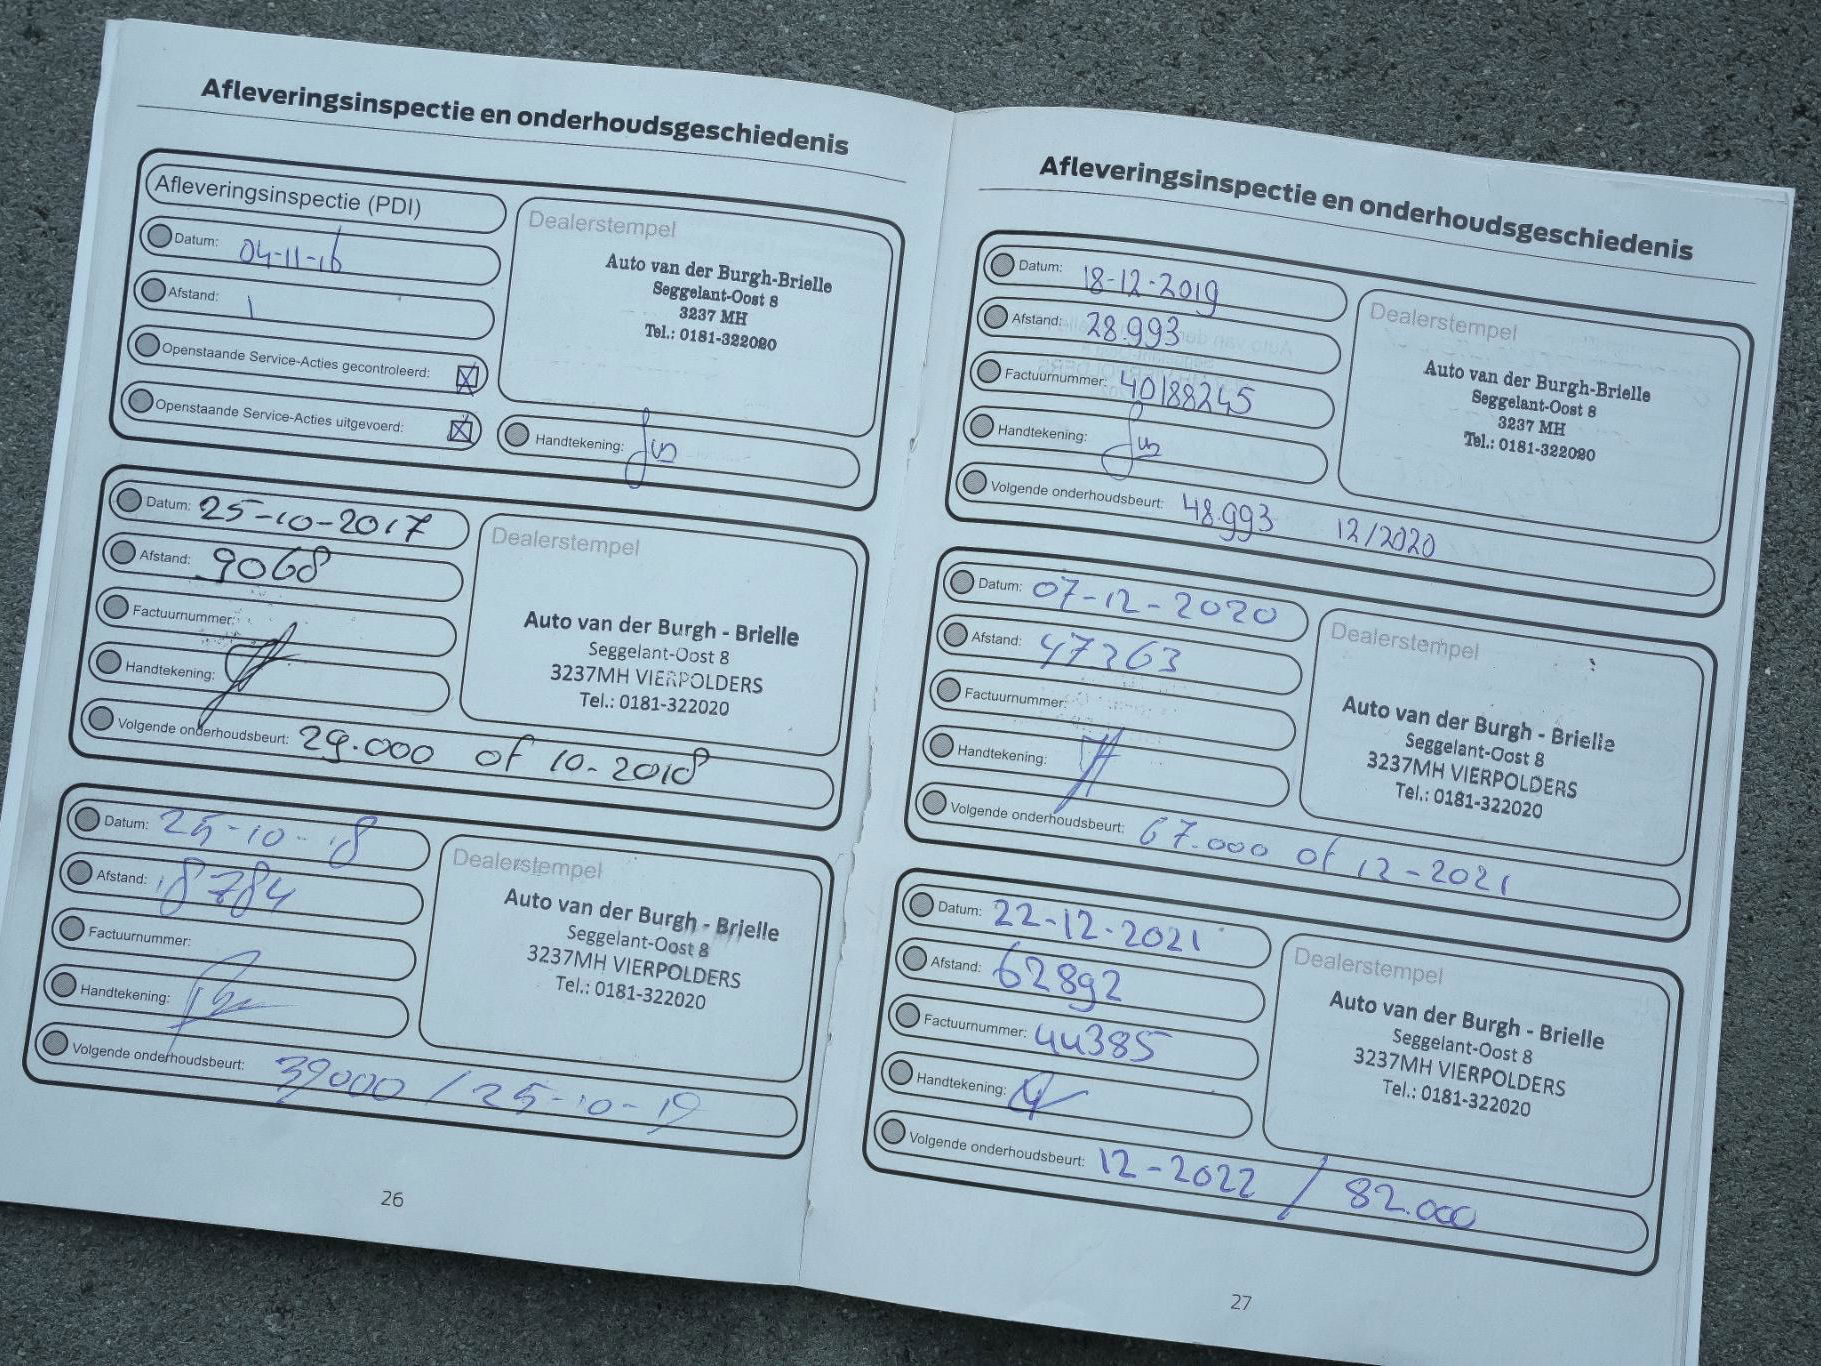 Afleveringsinspectie en onderhoudsgeschiedenis
Afleveringsinspectie (PDI)
Datum: 04-11-16
Afstand: 1
Openstaande Service-Acties gecontroleerd: X
Openstaande Service-Acties uitgevoerd: X
Dealerstempel
Auto van der Burgh-Brielle
Seggelant-Oost 8
3237 MH
Tel.: 0181-322020
Handtekening:
Datum: 25-10-2017
Afstand: 9068
Factuurnummer:
Handtekening:
Volgende onderhoudsbeurt: 29.000 of 10-2018
Dealerstempel
Auto van der Burgh - Brielle
Seggelant-Oost 8
3237MH VIERPOLDERS
Tel.: 0181-322020
Datum: 25-10-18
Afstand: 18784
Factuurnummer:
Handtekening:
Volgende onderhoudsbeurt: 39000 / 25-10-19
Dealerstempel
Auto van der Burgh - Brielle
Seggelant-Oost 8
3237MH VIERPOLDERS
Tel.: 0181-322020
26
Afleveringsinspectie en onderhoudsgeschiedenis
Datum: 18-12-2019
Afstand: 28.993
Factuurnummer: 40188245
Handtekening:
Volgende onderhoudsbeurt: 48.993 12/2020
Dealerstempel
Auto van der Burgh-Brielle
Seggelant-Oost 8
3237 MH
Tel.: 0181-322020
Datum: 07-12-2020
Afstand: 47363
Factuurnummer:
Handtekening:
Volgende onderhoudsbeurt: 67.000 of 12-2021
Dealerstempel
Auto van der Burgh - Brielle
Seggelant-Oost 8
3237MH VIERPOLDERS
Tel.: 0181-322020
Datum: 22-12-2021
Afstand: 62892
Factuurnummer: 44385
Handtekening:
Volgende onderhoudsbeurt: 12-2022 / 82.000
Dealerstempel
Auto van der Burgh - Brielle
Seggelant-Oost 8
3237MH VIERPOLDERS
Tel.: 0181-322020
27